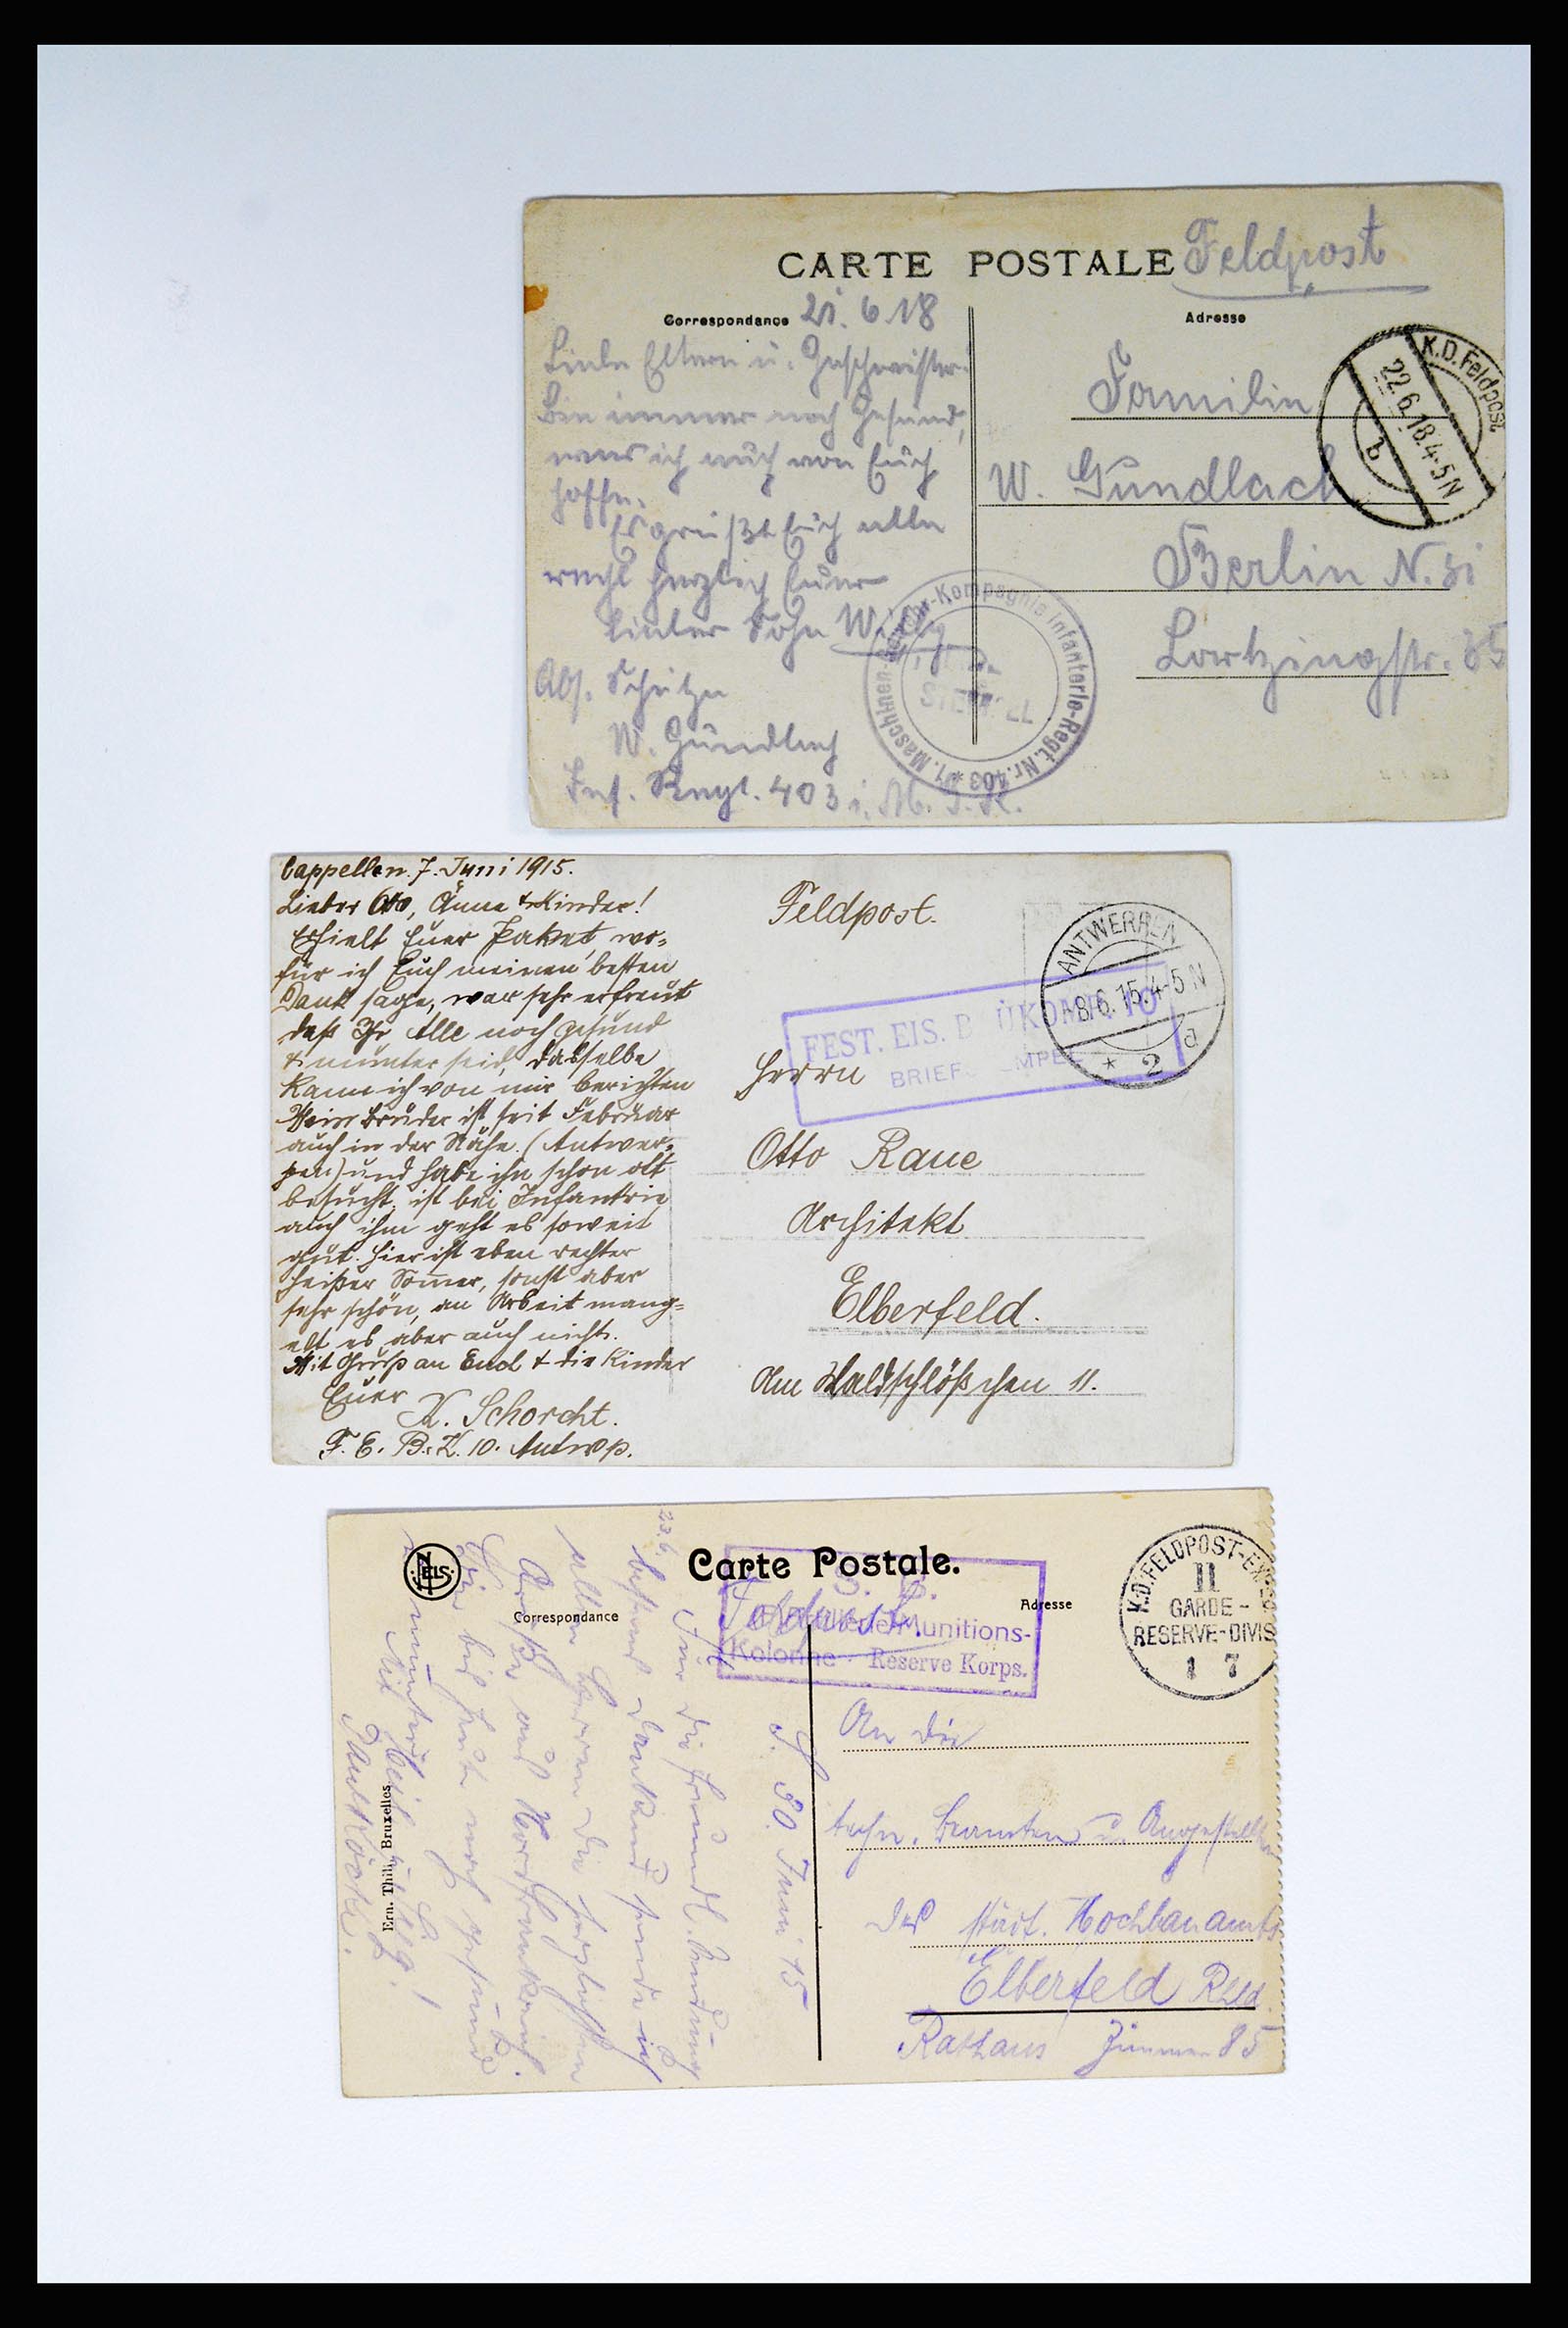 CARTE POSTALE Feldpost
Correspondance 21. 6. 18
Adresse
Liebe Eltern u. Geschwister.
Bin immer noch Gesund,
was ich auch von Euch
hoffe.
Es grüßt Euch alle
recht herzlich Euer
lieber Sohn Willy
Abs. Schütze
W. Gundlach
Inf. Regt. 403 1. M. G. K.
Familie
W. Gundlach
Berlin N. 31
Lortzingstr. 35
K.D. Feldpost
22.6.18.4-5N
b
1. Maschinen-Gewehr-Kompagnie Infanterie-Regt. Nr. 403
STEMPEL
Cappellen. 7. Juni 1915.
Lieber Otto, Änne & Kinder!
Erhielt Euer Paket, wo=
für ich Euch meinen besten
Dank sage, war sehr erfreut
daß Ihr Alle noch gesund
& munter seid, dasselbe
kann ich von mir berichten
Mein Bruder ist seit Februar
auch in der Nähe (Antwer=
pen) und habe ihn schon oft
besucht, ist bei Infantrie
auch ihm geht es soweit
gut. Hier ist eben rechter
heißer Sommer, sonst aber
sehr schön, an Arbeit mang=
elt es aber auch nicht.
Mit Gruß an Euch & die Kinder
Euer
K. Schorcht.
F. E. B. K. 10. Antwp.
Feldpost.
ANTWERPEN
8.6.15.4-5N
* 2 a
FEST. EIS. BAUKOMP. 10
BRIEFSTEMPEL
Herrn
Otto Raue
Architekt
Elberfeld.
Am Waldschlößchen 11.
NELS
Carte Postale.
Correspondance
Adresse
Feldpost.
S. B.
Artillerie Munitions-
Kolonne Reserve Korps.
K.D. FELDPOST-EXP.
II
GARDE-
RESERVE-DIVIS
1 7
Ern. Thill, Bruxelles
30. Juni 15
Für die freundl. Sendung
bestens dankend sende ich
allen Herren die herzlichsten
Grüße aus Nordfrankreich.
bis heute noch gesund
u. munter.
Mit
An die
techn. Beamten u. Angestellten
des städt. Hochbauamts
Elberfeld Rhld.
Rathaus Zimmer 85